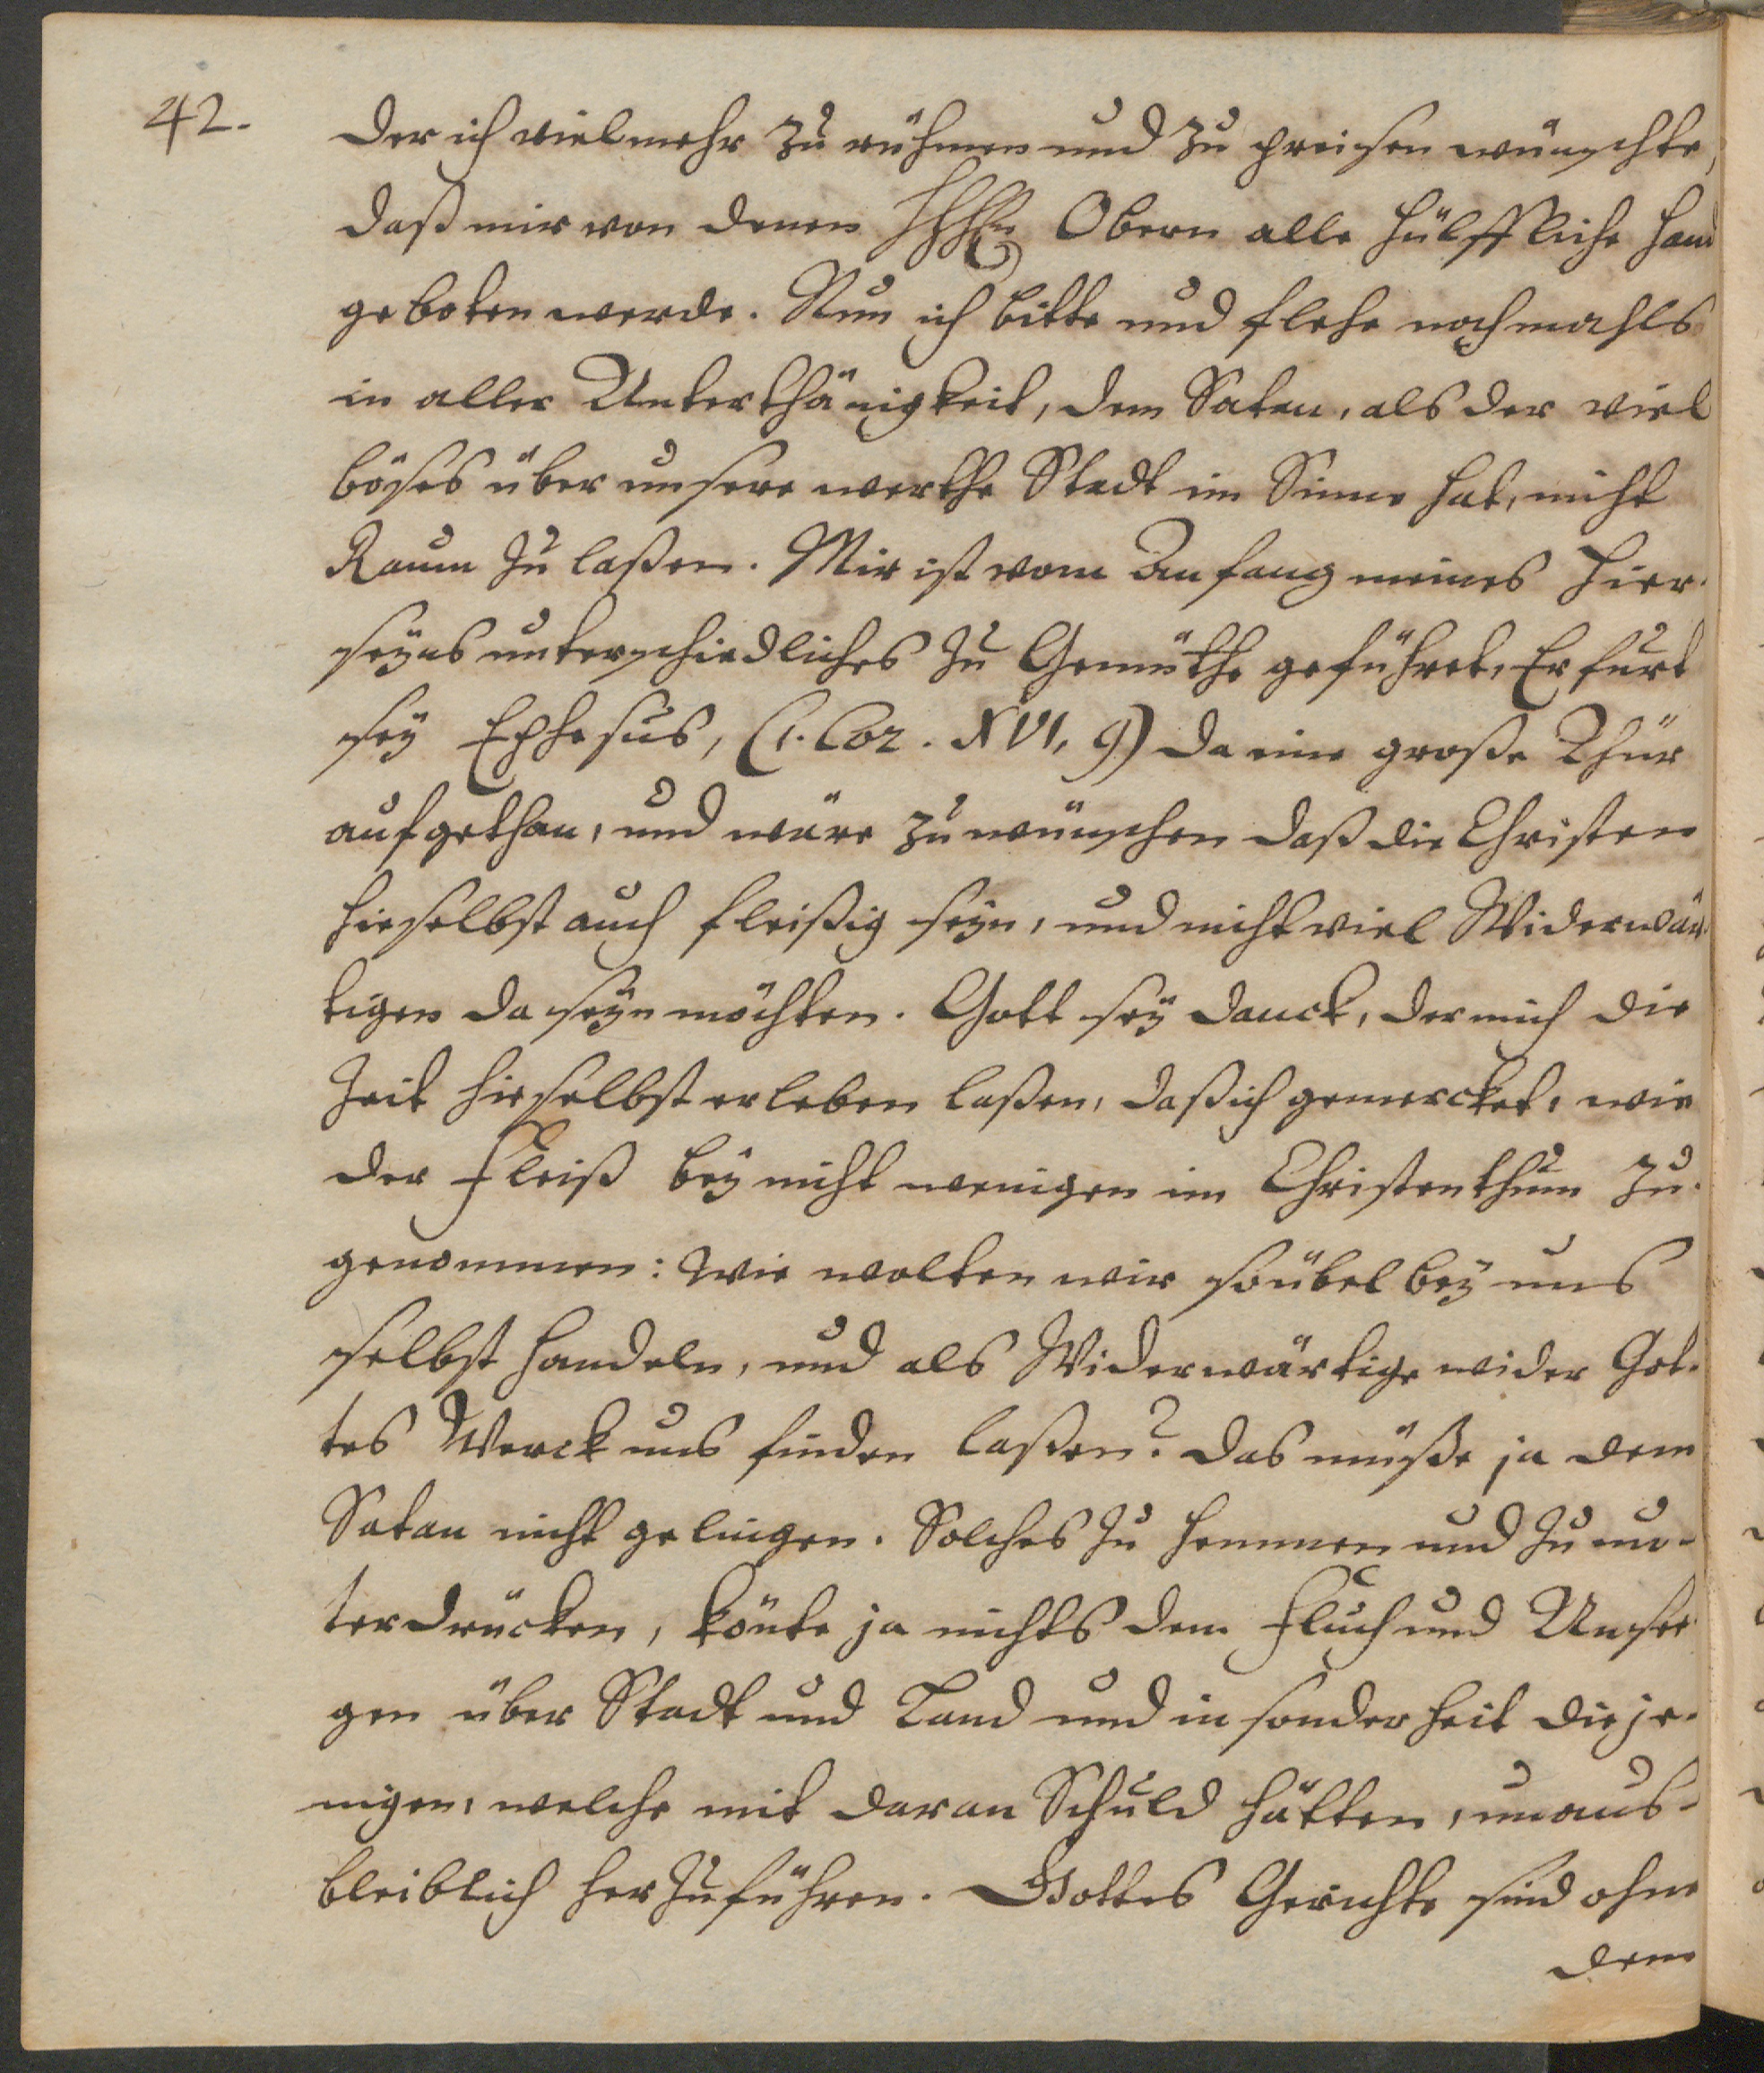 42.
der ich vielmehr zu rühmen und zu preisen wünschte,
daß mir von denen HHhEn Obern alle hülffliche Hand
geboten werde. Nun ich bitte und flehe nochmahls
in aller Unterthänigkeit, dem Satan, als der viel
böses über unsere werthe Stadt im Sinne hat, nicht
Raum zu laßen. Mir ist vom Anfang meines Hier-
seyns unterschiedliches zu Gemüthe geführet, Erfurt
sey Ephesus, (1. Cor. XVI, 9) da eine große Thür
aufgethan, und wäre zu wünschen daß die Christen
hieselbst auch fleißig seyn, und nicht viel Widerwär-
tigen da seyn möchten. Gott sey danck, der mich die
Zeit hieselbst erleben laßen, daß ich gemercket, wie
der Fleiß bey nicht wenigen im Christenthum zu-
genommen: Wie wolten wir so übel bey uns
selbst handeln, und als Widerwärtige wider Got-
tes Werck uns finden laßen? das müße ja dem
Satan nicht gelingen. Solches zu hemmen und zu un-
terdrücken, könte ja nichts denn Fluch und Unsee-
gen über Stadt und Land und in sonderheit dieje-
nigen, welche mit daran Schuld hätten, unaus-
bleiblich herzuführen. Gottes Gerichte sind ohne
dem